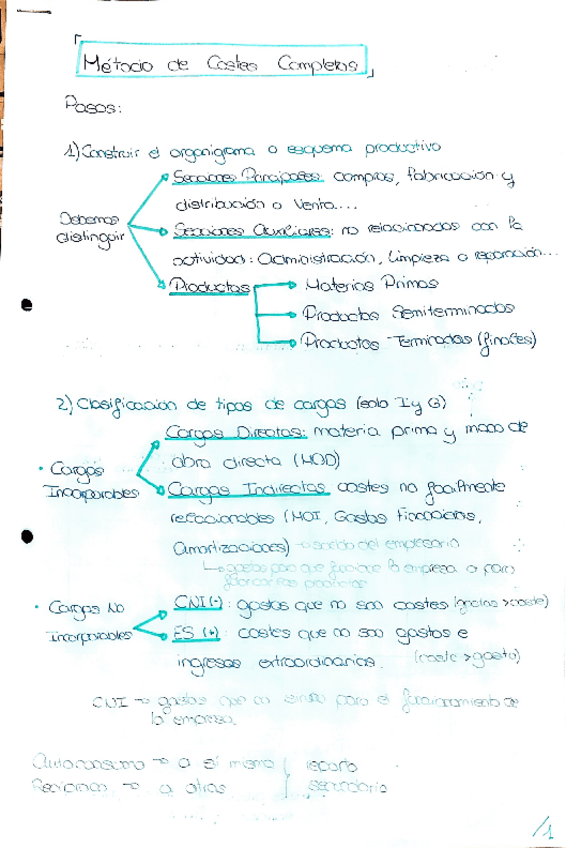 Método de Costes Completos
Pasos:
1) Construir el organigrama o esquema productivo
Debemos distinguir
Secciones Principales: compras, fabricación y
distribución o venta....
Secciones Auxiliares: no relacionadas con la
actividad: Administración, Limpieza o reparación...
Productos
Materias Primas
Productos Semiterminados
Productos Terminados (finales)
2) Clasificación de tipos de cargas (solo I y G)
• Cargas Incorporables
Cargas Directas: materia prima y mano de
obra directa (MOD)
Cargas Indirectas costes no fácilmente
relacionables (MOI, Gastos Financieros,
Amortizaciones) → sueldo del empresario
gastos para que funcione la empresa o para
• Cargas No Incorporables
CNI (-): gastos que no son costes (gasto > coste)
ES (+): costes que no son gastos e
ingresos extraordinarios. (coste > gasto)
CNI → gastos que no para el funcionamiento de
la empresa.
Autoconsumo → a sí mismo } reparto
Recíprocas → a otras } secundario
/1